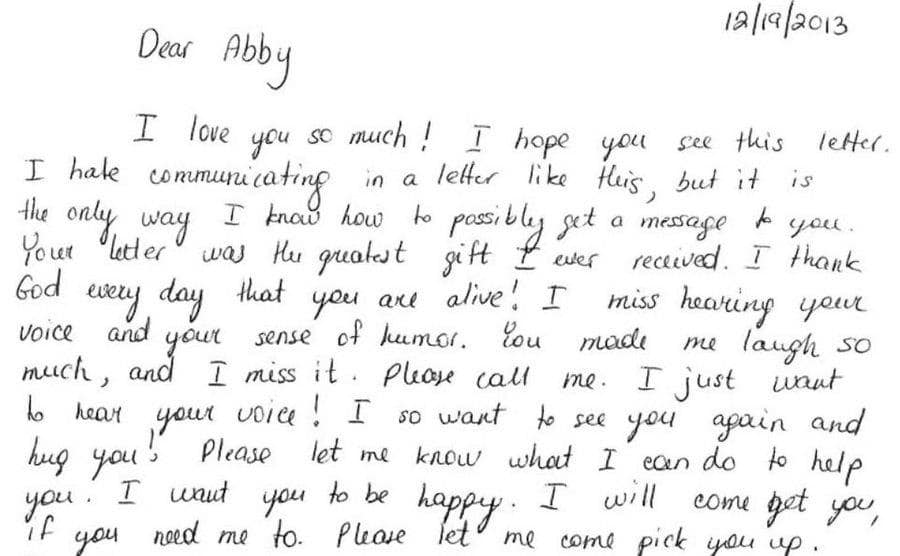 12/19/2013
Dear Abby
I love you so much! I hope you see this letter.
I hate communicating in a letter like this, but it is
the only way I know how to possibly get a message to you.
Your letter was the greatest gift I ever received. I thank
God every day that you are alive! I miss hearing your
voice and your sense of humor. You made me laugh so
much, and I miss it. Please call me. I just want
to hear your voice! I so want to see you again and
hug you! Please let me know what I can do to help
you. I want you to be happy. I will come get you,
if you need me to. Please let me come pick you up.